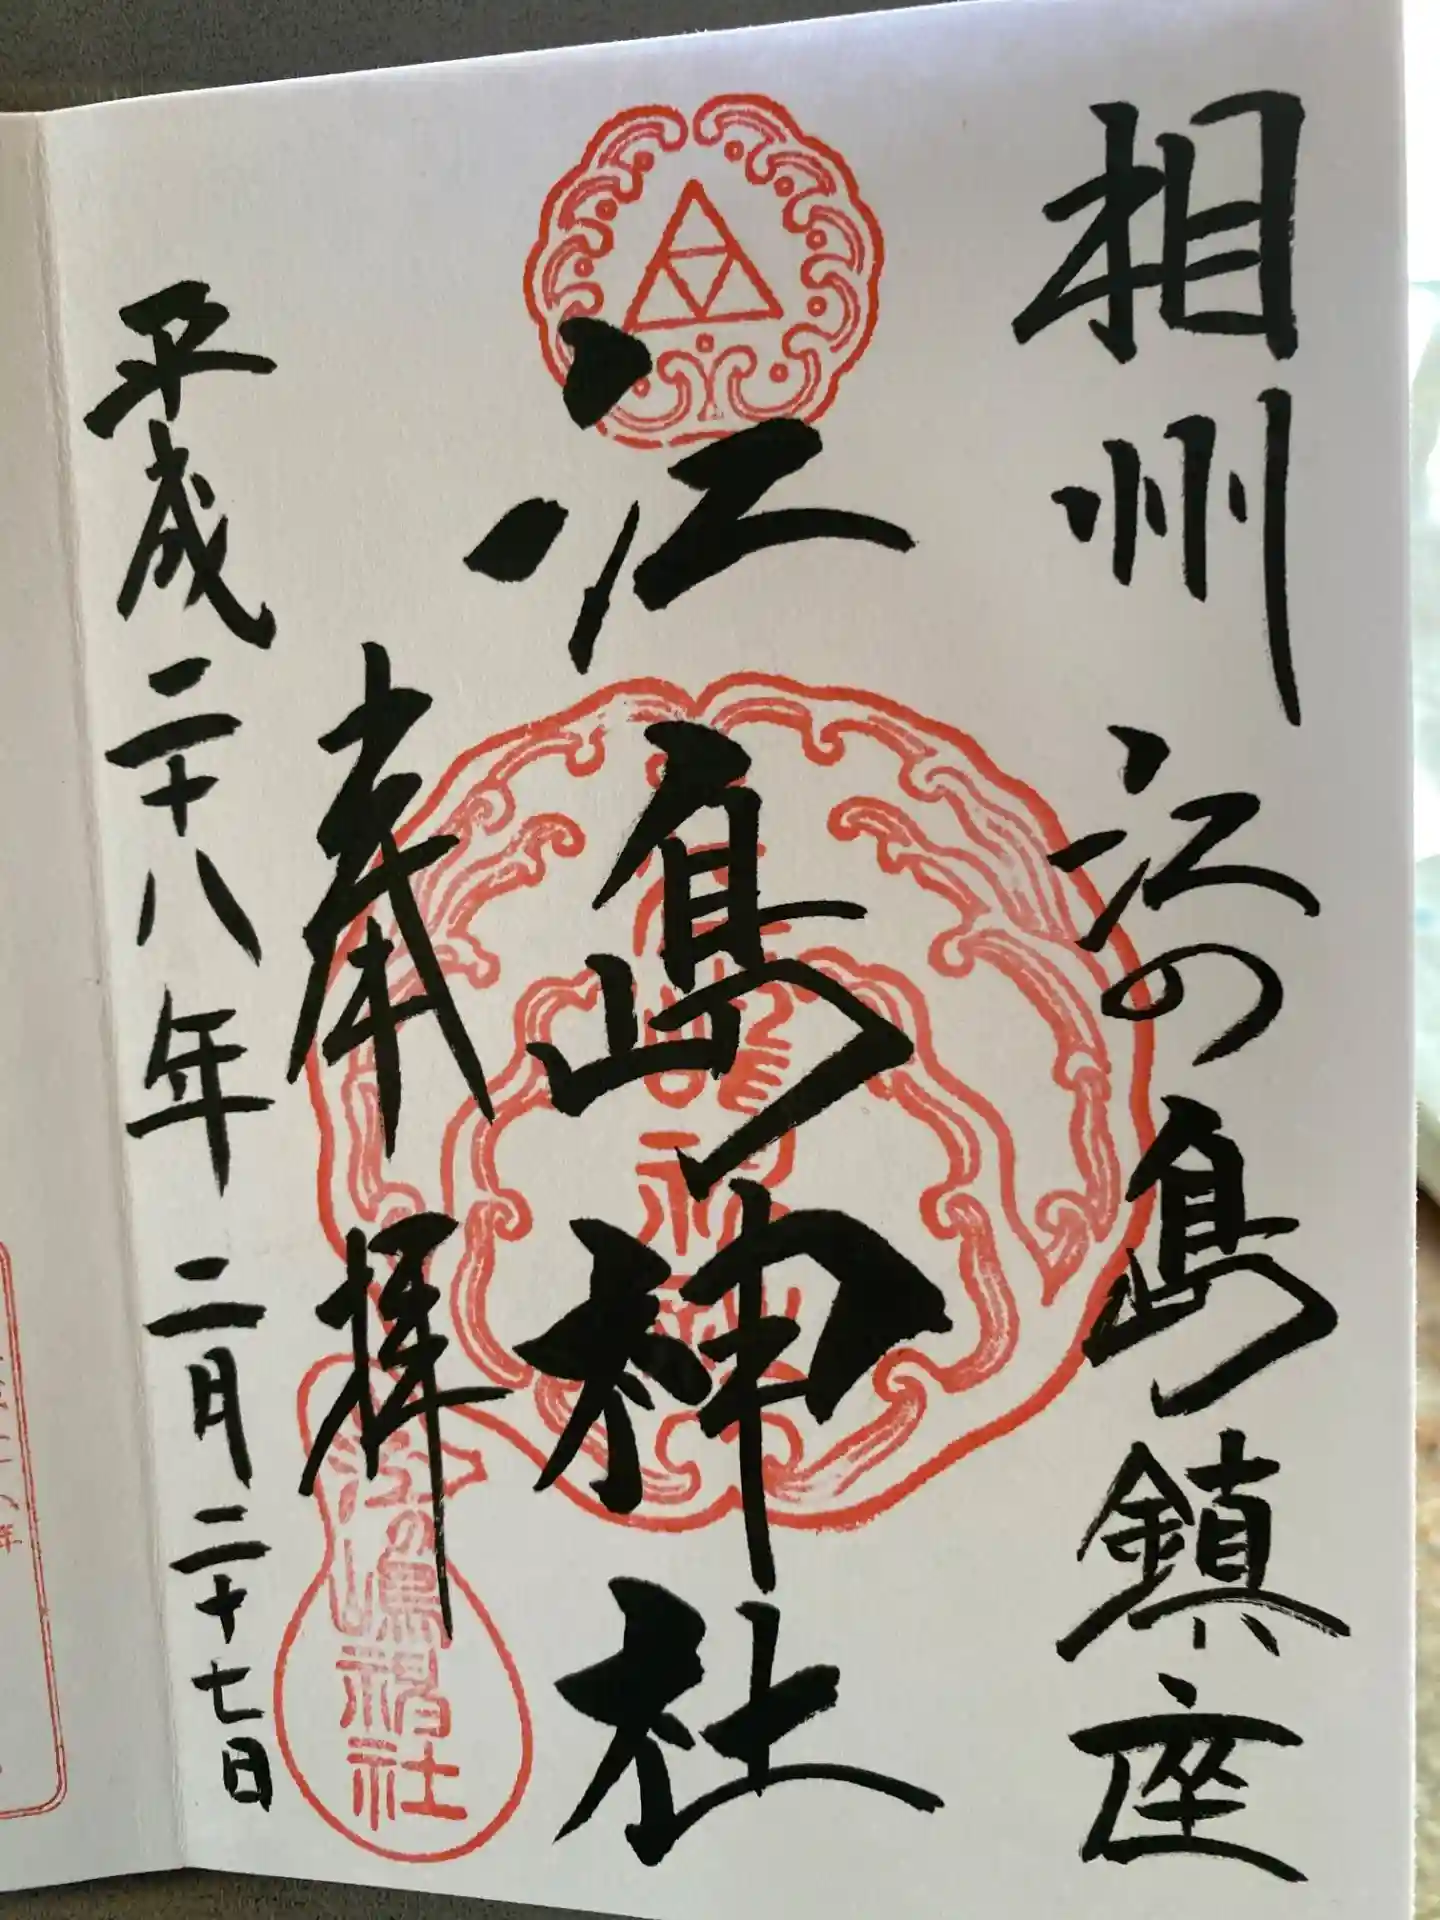 相州江の島鎮座
江島神社
奉拝
平成二十八年二月二十七日